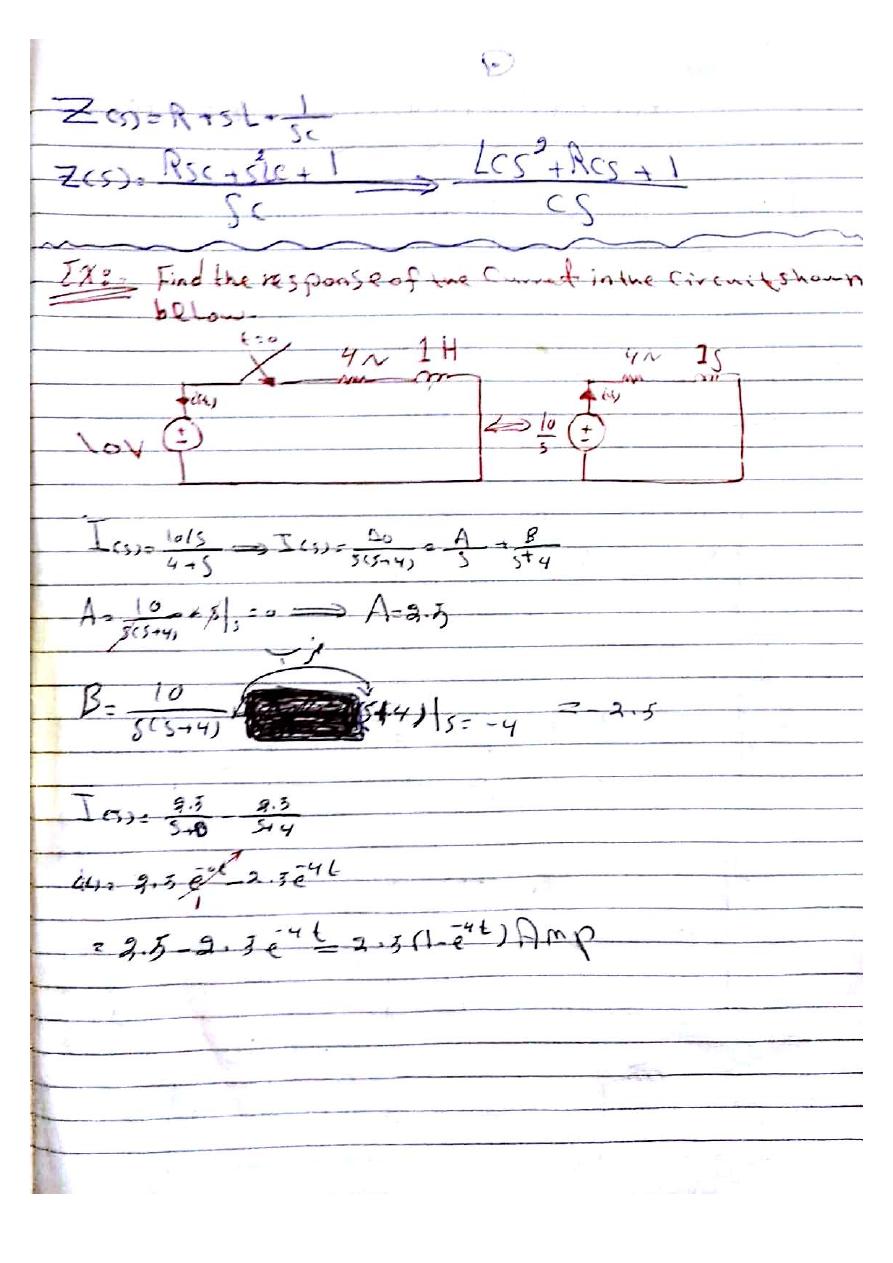 ١٠
Z(s) = R + sL + 1/sc
Z(s) = (Rsc + s²Lc + 1)/sc ⟹ (Lcs² + Rcs + 1)/cs
EX:- Find the response of the Current in the Circuit shown
below
t=0
4Ω 1H 4Ω 1s
i(t) i(s)
10V ± ⟺ 10/s ±
I(s) = (10/s)/(4+s) ⟹ I(s) = 10/(s(s+4)) = A/s + B/(s+4)
A = 10/(s(s+4)) * s|s=0 ⟹ A=2.5
B = 10/(s(s+4)) (s+4)|s=-4 = -2.5
I(s) = 2.5/(s+0) - 2.5/(s+4)
i(t) = 2.5 e^-0t - 2.5 e^-4t
1
= 2.5 - 2.5 e^-4t = 2.5 (1-e^-4t) Amp